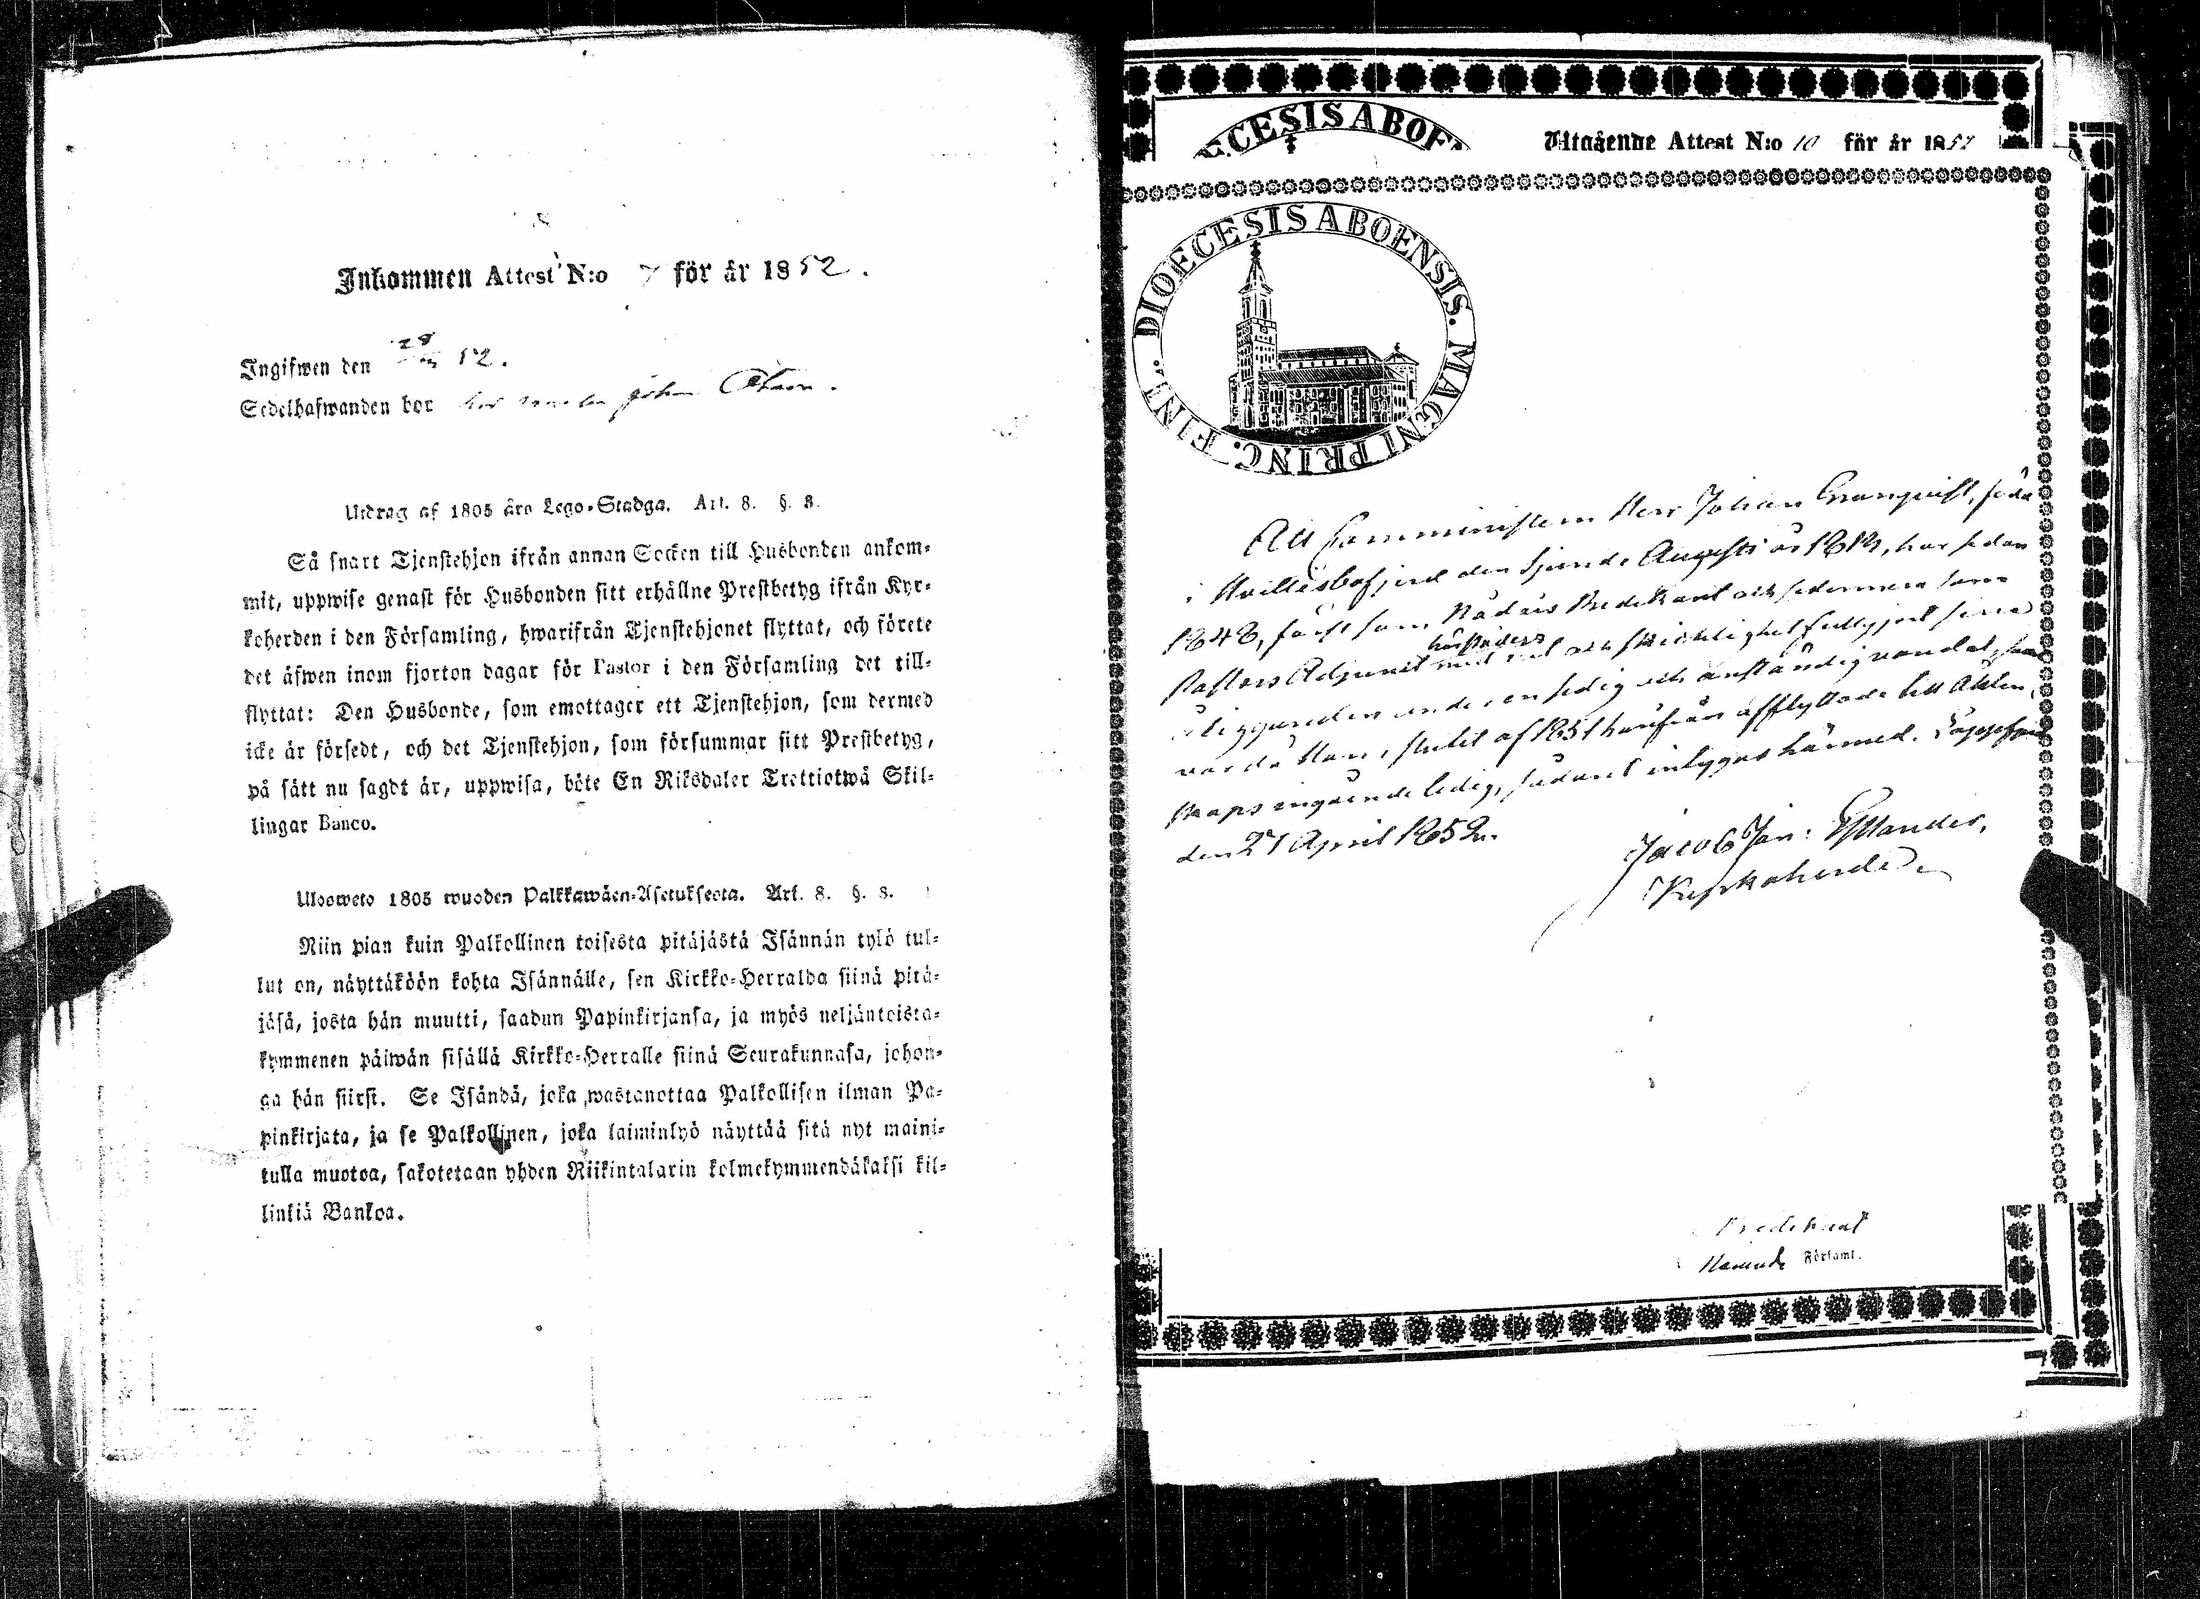 Inkommen Attest N:o 7 för år 1852.
Ingifwen den 28 52.
Sedelhafwanden bor hos
Utdrag af 1805 års Lego-Stadga. Art. 8. §. 3.
Så snart Tjenstehjon ifrån annan Socken till Husbonden ankom-
mit, uppwise genast för Husbonden sitt erhållne Prestbetyg ifrån Kyr-
koherden i den Församling, hwarifrån Tjenstehjonet flyttat, och förete
det äfwen inom fjorton dagar för Pastor i den Församling det till-
flyttat: Den Husbonde, som emottager ett Tjenstehjon, som dermed
icke är försedt, och det Tjenstehjon, som försummar sitt Prestbetyg,
på sätt nu sagdt är, uppwisa, böte En Riksdaler Trettiotwå Skil-
lingar Banco.
Ulosweto 1805 wuoden Palkkawäen-Asetuksesta. Art. 8. §. 3.
Niin pian kuin Palkollinen toisesta pitäjästä Isännän tylö tul-
lut on, näyttäköön kohta Isännälle, sen Kirkko-Herralda siinä pitä-
jäsä, josta hän muutti, saadun Papinkirjansa, ja myös neljäntoista-
kymmenen päiwän sisällä Kirkko-Herralle siinä Seurakunnasa, johon-
ga hän siirsi. Se Isändä, joka wastanottaa Palkollisen ilman Pa-
pinkirjata, ja se Palkollinen, joka laiminlyö näyttää sitä nyt maini-
tulla muotoa, sakotetaan yhden Riikintalarin kolmekymmendäkaksi kil-
linkiä Bankoa.
CESIS ABOE
Utgående Attest N:o 10 för år 1852
DIOECESIS ABOENSIS. MAGNI PRINC. FINL.
Att Comministern Herr Johan Granquist, född
i Hvittisbofjerd den Sjunde Augusti år 1813, har sedan
1848, först som Nådårs Predikant och sedermera som
härstädes
Pastors Adjunct med nit och skicklighet fullgjort sina
åligganden under en sedig och anständig vandel,
var då Han i slutet af 1851 härifrån afflyttade till
skaps ingående ledig, sådant intygas härmed.
den 27 April 1852.
Jacob Joh:
Kyrkoherde
Predikant
Församl.